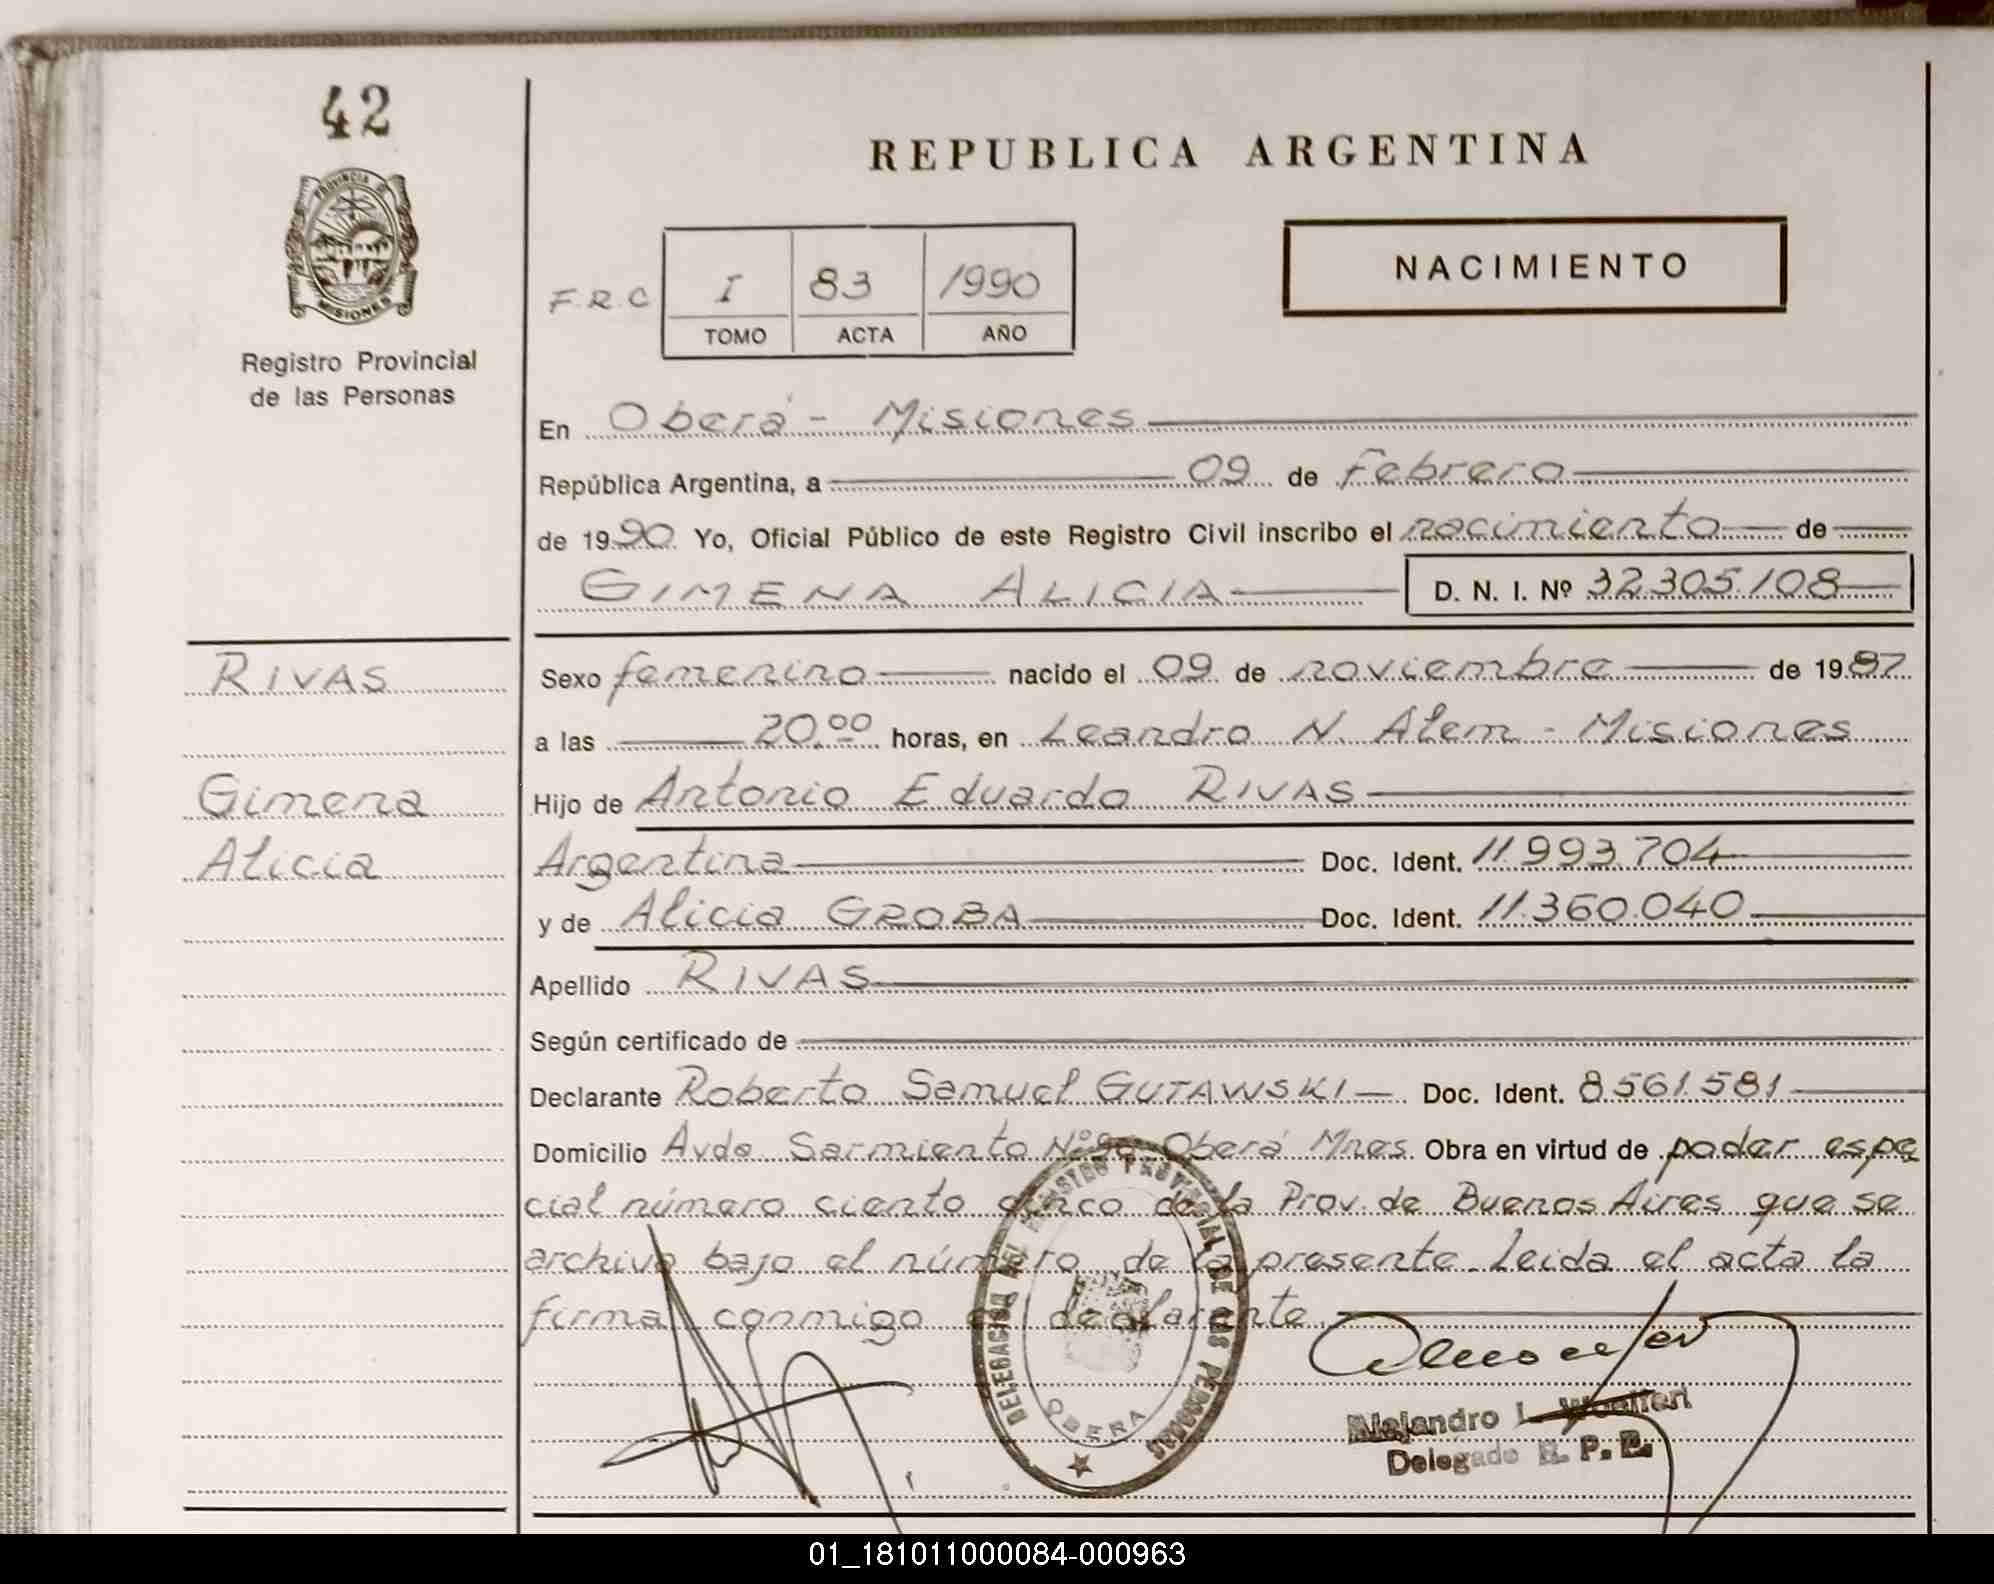 42
PROVINCIA DE
MISIONES
Registro Provincial
de las Personas
REPUBLICA ARGENTINA
F.R.C I 83 1990
TOMO ACTA AÑO
NACIMIENTO
En Oberá - Misiones
República Argentina, a 09 de Febrero
de 1990 Yo, Oficial Público de este Registro Civil inscribo el nacimiento de
GIMENA ALICIA D. N. I. Nº 32.305.108
RIVAS
Gimena
Alicia
Sexo femenino nacido el 09 de noviembre de 1987
a las 20.00 horas, en Leandro N. Alem - Misiones
Hijo de Antonio Eduardo RIVAS
Argentina Doc. Ident. 11.993.704
y de Alicia GROBA Doc. Ident. 11.360.040
Apellido RIVAS
Según certificado de
Declarante Roberto Samuel GUTAWSKI Doc. Ident. 8.561.581
Domicilio Avda Sarmiento Oberá Mnes. Obra en virtud de poder espe
cial número ciento cinco de la Prov. de Buenos Aires que se
archiva bajo el número de la presente. Leida el acta la
firma conmigo el declarante.
DELEGACION DEL REGISTRO PROVINCIAL DE LAS PERSONAS
OBERA
Alejandro L.
Delegado R. P. P.
01_181011000084-000963